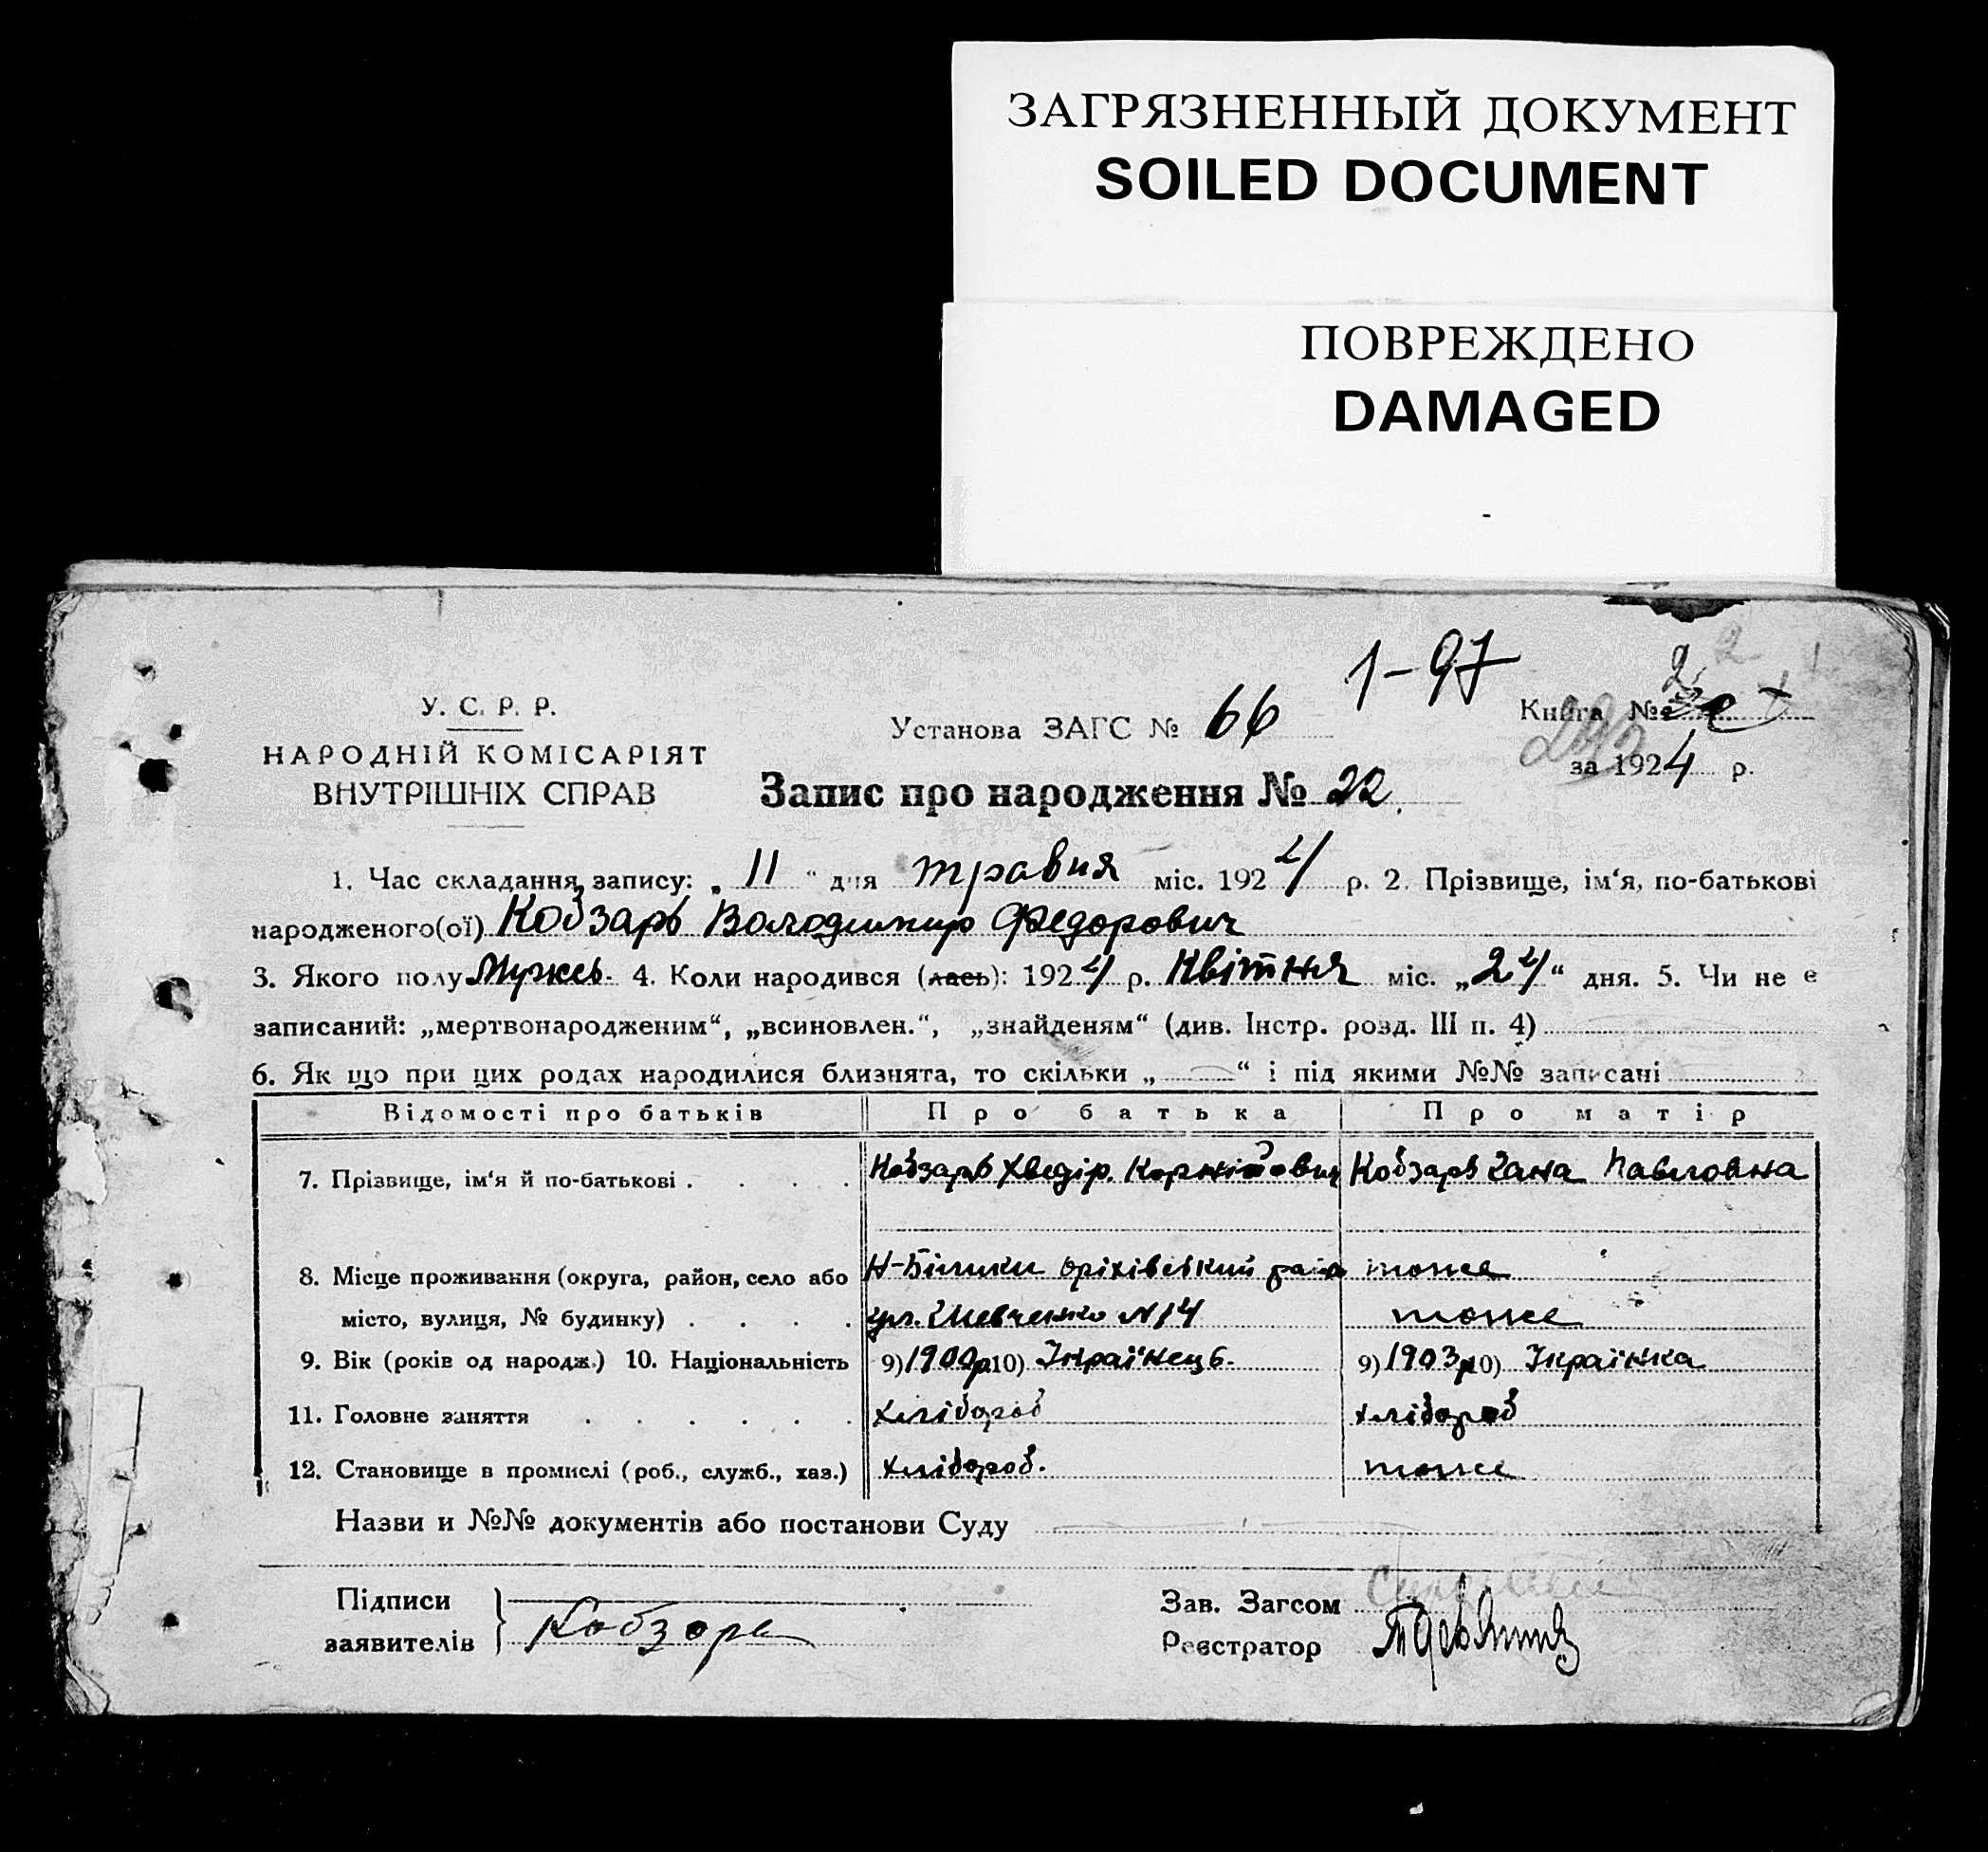 ЗАГРЯЗНЕННЫЙ ДОКУМЕНТ
SOILED DOCUMENT
ПОВРЕЖДЕНО
DAMAGED
1-97
У. С. Р. Р.
НАРОДНІЙ КОМІСАРІЯТ
ВНУТРІШНІХ СПРАВ
Установа ЗАГС № 66
Книга № 2
за 1924 р.
Запис про народження № 22.
1. Час складання запису: „ 11 “ дня травня міс. 1924 р. 2. Прізвище, ім‘я, по-батькові
народженого(ої) Кобзарь Володимир Федорович
3. Якого полу Мужеь. 4. Коли народився (лась): 1924 р. Квітня міс. „24“ дня. 5. Чи не є
записаний: „мертвонародженим“, „всиновлен.“, „знайденям“ (див. Інстр. розд. III п. 4)
6. Як що при цих родах народилися близнята, то скільки „ “ і під якими №№ записані
Відомості про батьків Про батька Про матір
7. Прізвище, ім‘я й по-батькові . . . . Кобзарь Хведір. Корнійович Кобзарь Павловна
8. Місце проживання (округа, район, село або Н-Білики оріхівський тоже
місто, вулиця, № будинку) . . . . ул. Шевченко №14 тоже
9. Вік (років од народж.) 10. Національність 9) 1900р 10) Українець. 9) 1903р 10) Українка
11. Головне заняття . . . . . . Хлібороб хлібороб
12. Становище в промислі (роб., служб., хаз.) Хлібороб. тоже
Назви и №№ документів або постанови Суду
Підписи
заявителів Кобзарь
Зав. Загсом
Реєстратор